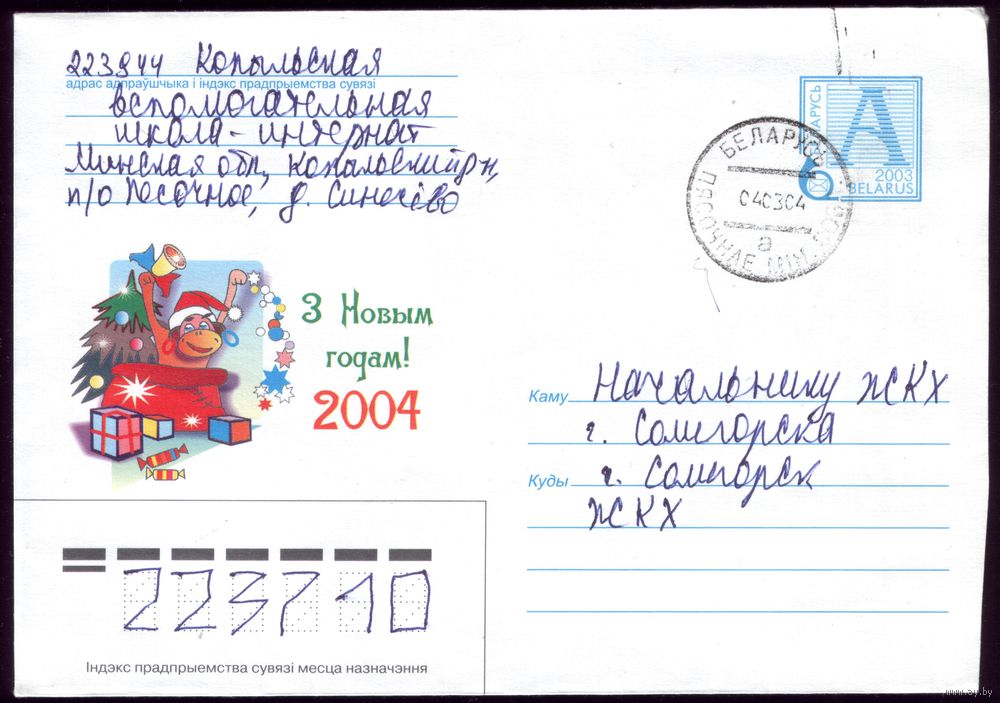 223944 Копыльская
адрас адпраўшчыка і індэкс прадпрыемства сувязі
вспомогательная
школа-интернат
Минская обл, Копыльский р-н,
п/о Песочное, д.
БЕЛАРУСЬ
A
2003
BELARUS
БЕЛАРУСЬ
040304
а
З Новым
годам!
2004
Каму Начальнику ЖКХ
г. Солигорска
Куды г. Солигорск
ЖКХ
223710
Індэкс прадпрыемства сувязі месца назначэння
www.ay.by